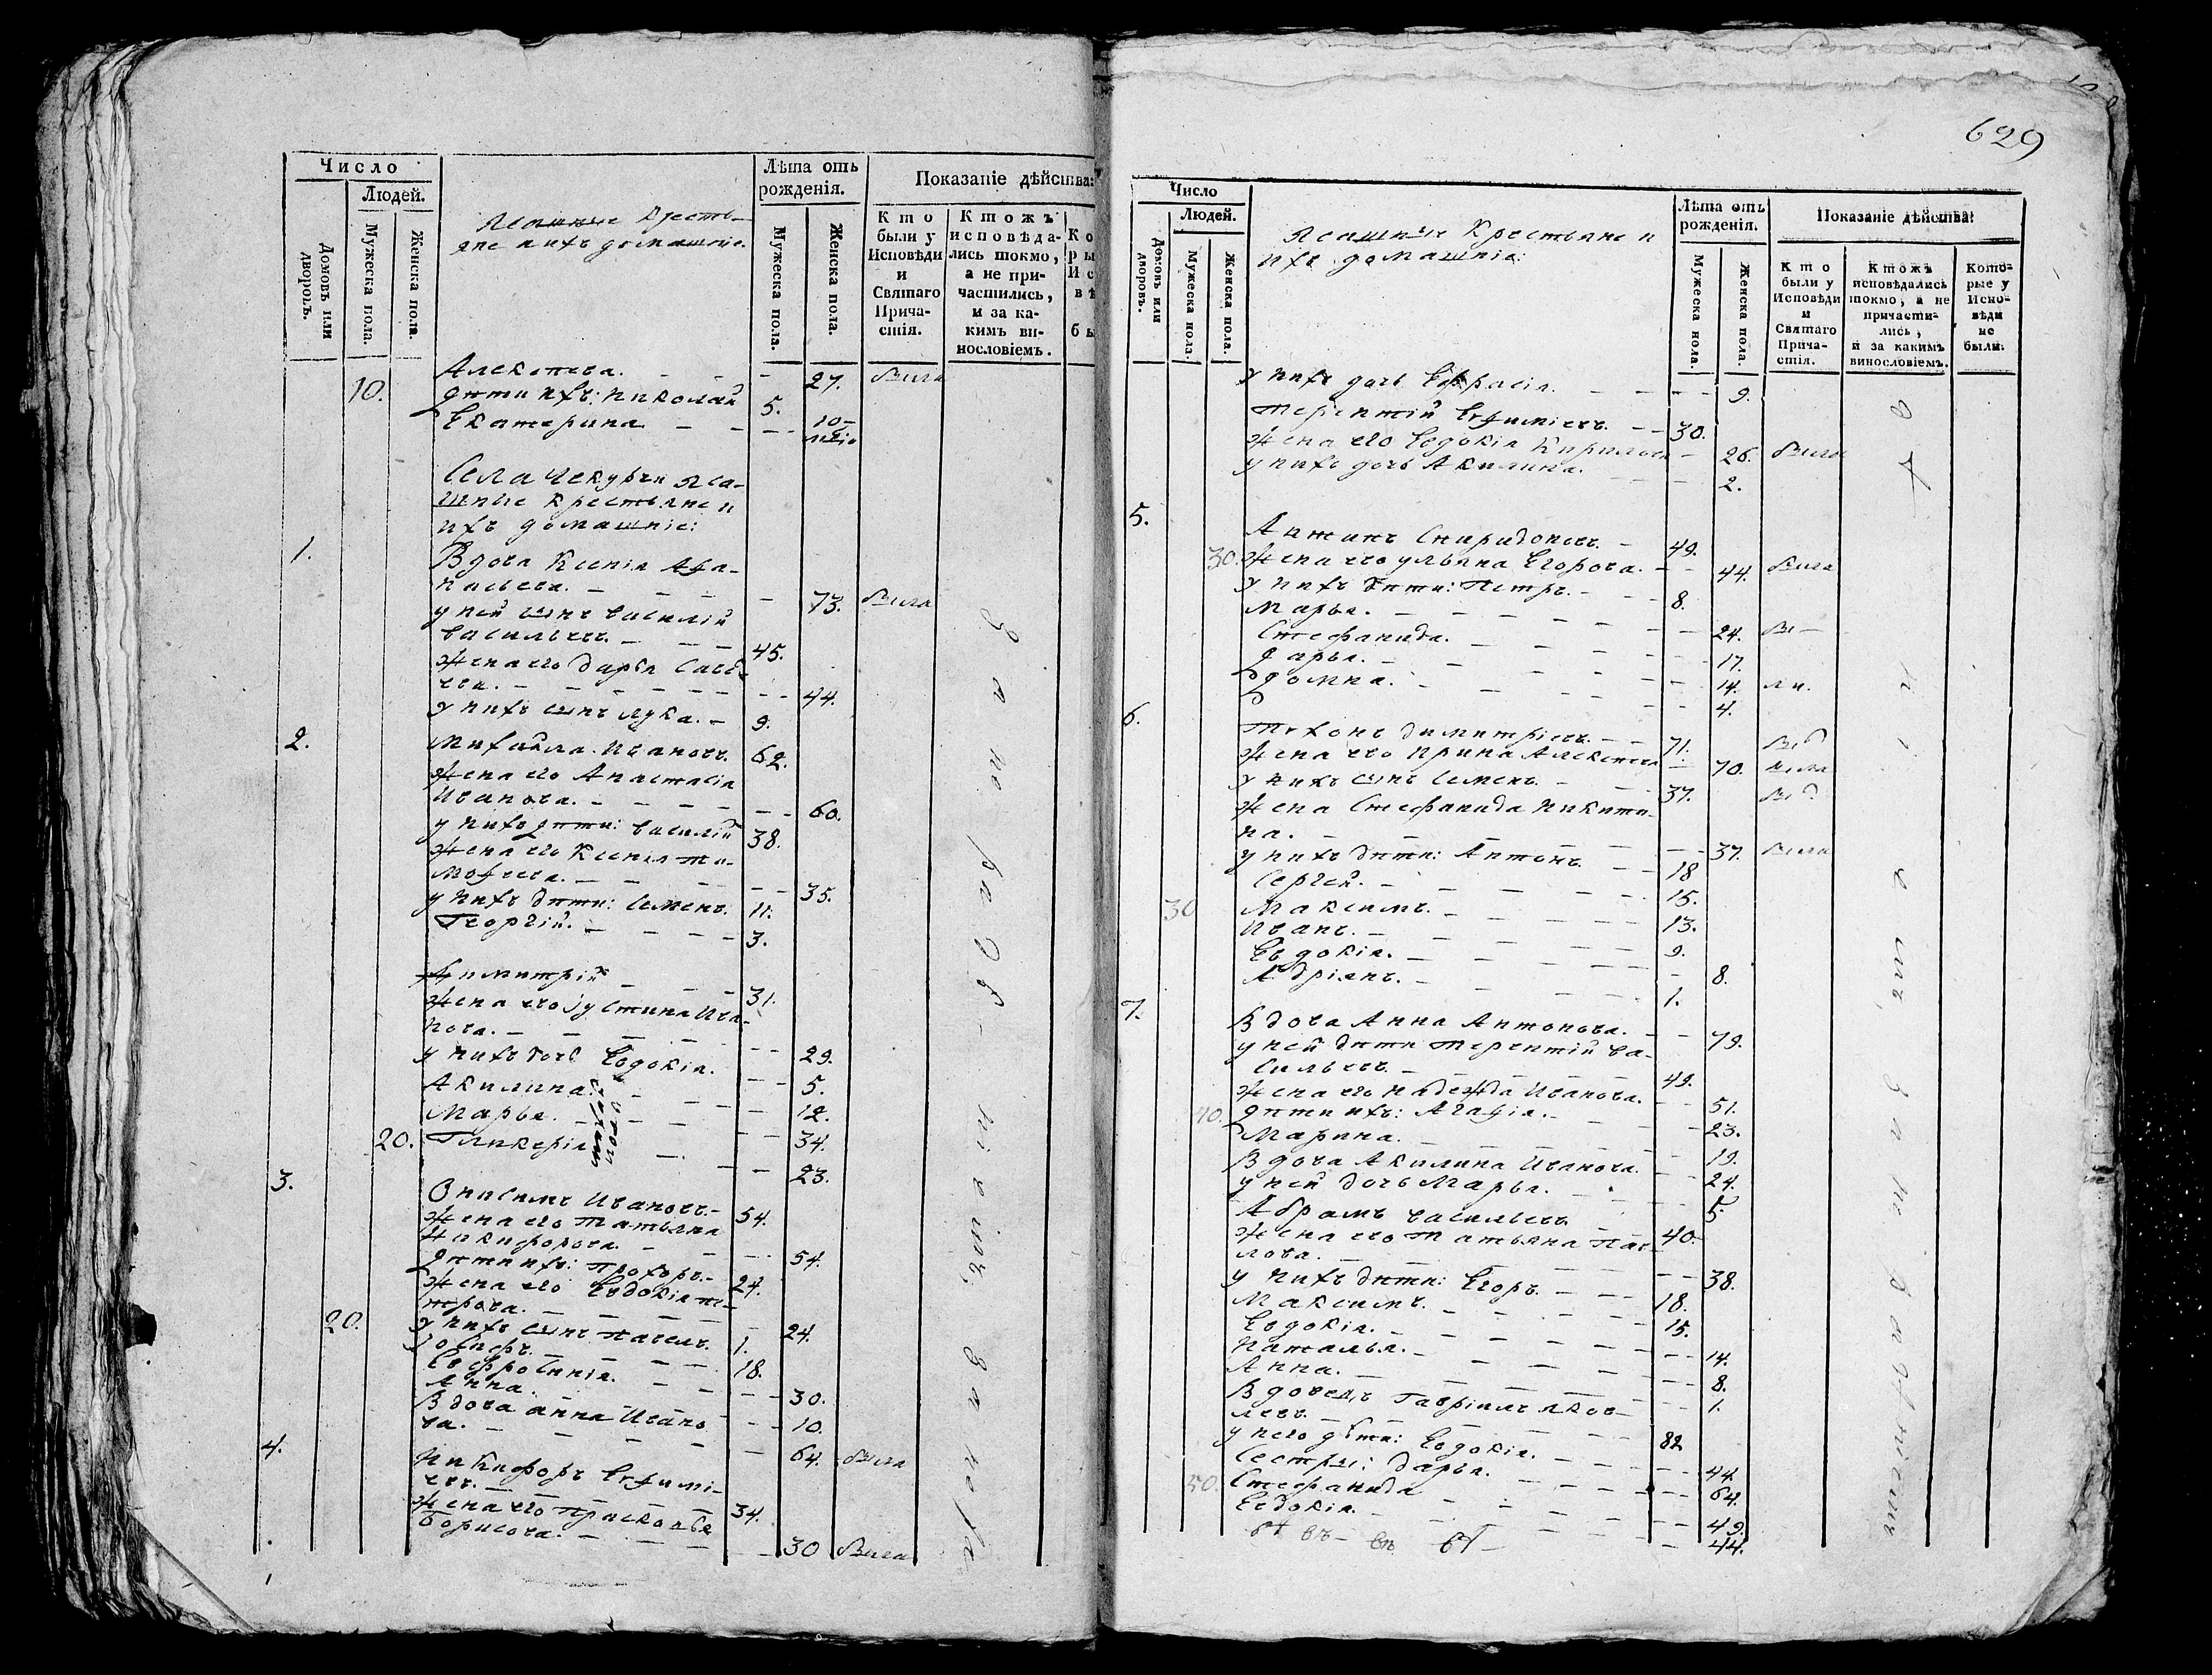 Число
Людей.
Домовъ или дворовъ.
Мужеска пола.
Женска пола.
Ясашные Кресть-
яне и ихъ домашніе.
Лѣта отъ рожденія.
Мужеска пола.
Женска пола.
Показаніе дѣйства:
Кто были у Исповѣди и Святаго Прича-стія.
Ктожъ исповѣда-лись токмо, а не при-частились, и за ка-кимъ ви-нословіемъ.
Алексѣева. 27. была
10. дѣти ихъ: Николай 5.
Екатерина 10-
Села Чекурчи яса-
шные крестьяне и
ихъ домашніе:
1. Вдова Ксенія Афа-
насьева. 73. была
у ней сынъ Василій
Васильевъ. 45.
жена его Дарья Савѣ-
ева. 44.
у нихъ сынъ Лука. 9.
2. Михайла Ивановъ. 62.
жена его Анастасія
Иванова. 60.
у нихъ дѣти: Василій 38.
жена его Ксенія Ти-
мофеева. 35.
у нихъ дѣти: Семенъ. 11.
Георгій. 3.
Димитрій 31.
жена его Іустина Ива-
нова. 29.
у нихъ дочь Евдокія. 5.
Акилина. 12.
Марья. 34.
20. Гликерія 23.
3. Онисимъ Ивановъ. 54.
жена его Татьяна
Никифорова. 54.
дѣти ихъ: Прохоръ. 24.
жена его Евдокія Пе-
трова. 24.
20. у нихъ сынъ Павелъ. 1.
Іосифъ. 18.
Евфросинія. 30.
Анна. 10.
Вдова Анна Ивано
ва. 64. была
4. Никифоръ Ефимі-
евъ. 34.
жена его Прасковья
Борисова. 30 была
629
Число
Людей.
Домовъ или дворовъ.
Мужеска пола.
Женска пола.
Ясашные Крестьяне и
ихъ домашніе:
Лѣта отъ рожденія.
Мужеска пола.
Женска пола.
Показаніе дѣйства:
Кто были у Исповѣди и Святаго Прича-стія.
Ктожъ исповѣдались токмо, а не причасти-лись, и за какимъ винословіемъ.
Кото-рые у Испо-вѣди не были.
у нихъ дочь 9.
Терентій Ефиміевъ. 30.
жена его Евдокія Кирилова 26. была
у нихъ дочь Акилина. 2.
5. Антипъ Спиридоновъ. 49.
30. жена его Ульяна Егорова. 44. была
у нихъ дѣти: Петръ. 8.
Марья. 24.
Стефанида. 17.
Дарья. 14.
Домна. 4.
6. Тихонъ Димитріевъ. 71.
жена его Ирина Алексѣева 70. была
у нихъ сынъ Семенъ. 37.
жена Стефанида Никити-
на. 37. была
у нихъ дѣти: Антонъ. 18
Сергей. 15.
30 Максимъ. 13.
Иванъ. 9.
Евдокія. 8.
Адріянъ. 1.
7. Вдова Анна Антонова. 79.
у ней дѣти Терентій Ва-
сильевъ. 49.
жена его Надежда Иванова. 51.
40. дѣти ихъ: Агафія. 23.
Марина. 19.
Вдова Акилина Иванова. 24.
у ней дочь Марья. 5
Абрамъ Васильевъ 40.
жена его Татьяна Пав-
лова. 38.
у нихъ дѣти: Егоръ. 18.
Максимъ. 15.
Евдокія. 14.
Наталья. 8.
Анна. 1.
Вдовецъ Гавріилъ Яков-
левъ. 82
у него дѣти: Евдокія. 44.
Сестры: Дарья. 64.
50. Стефанида 49.
Евдокія. 44.